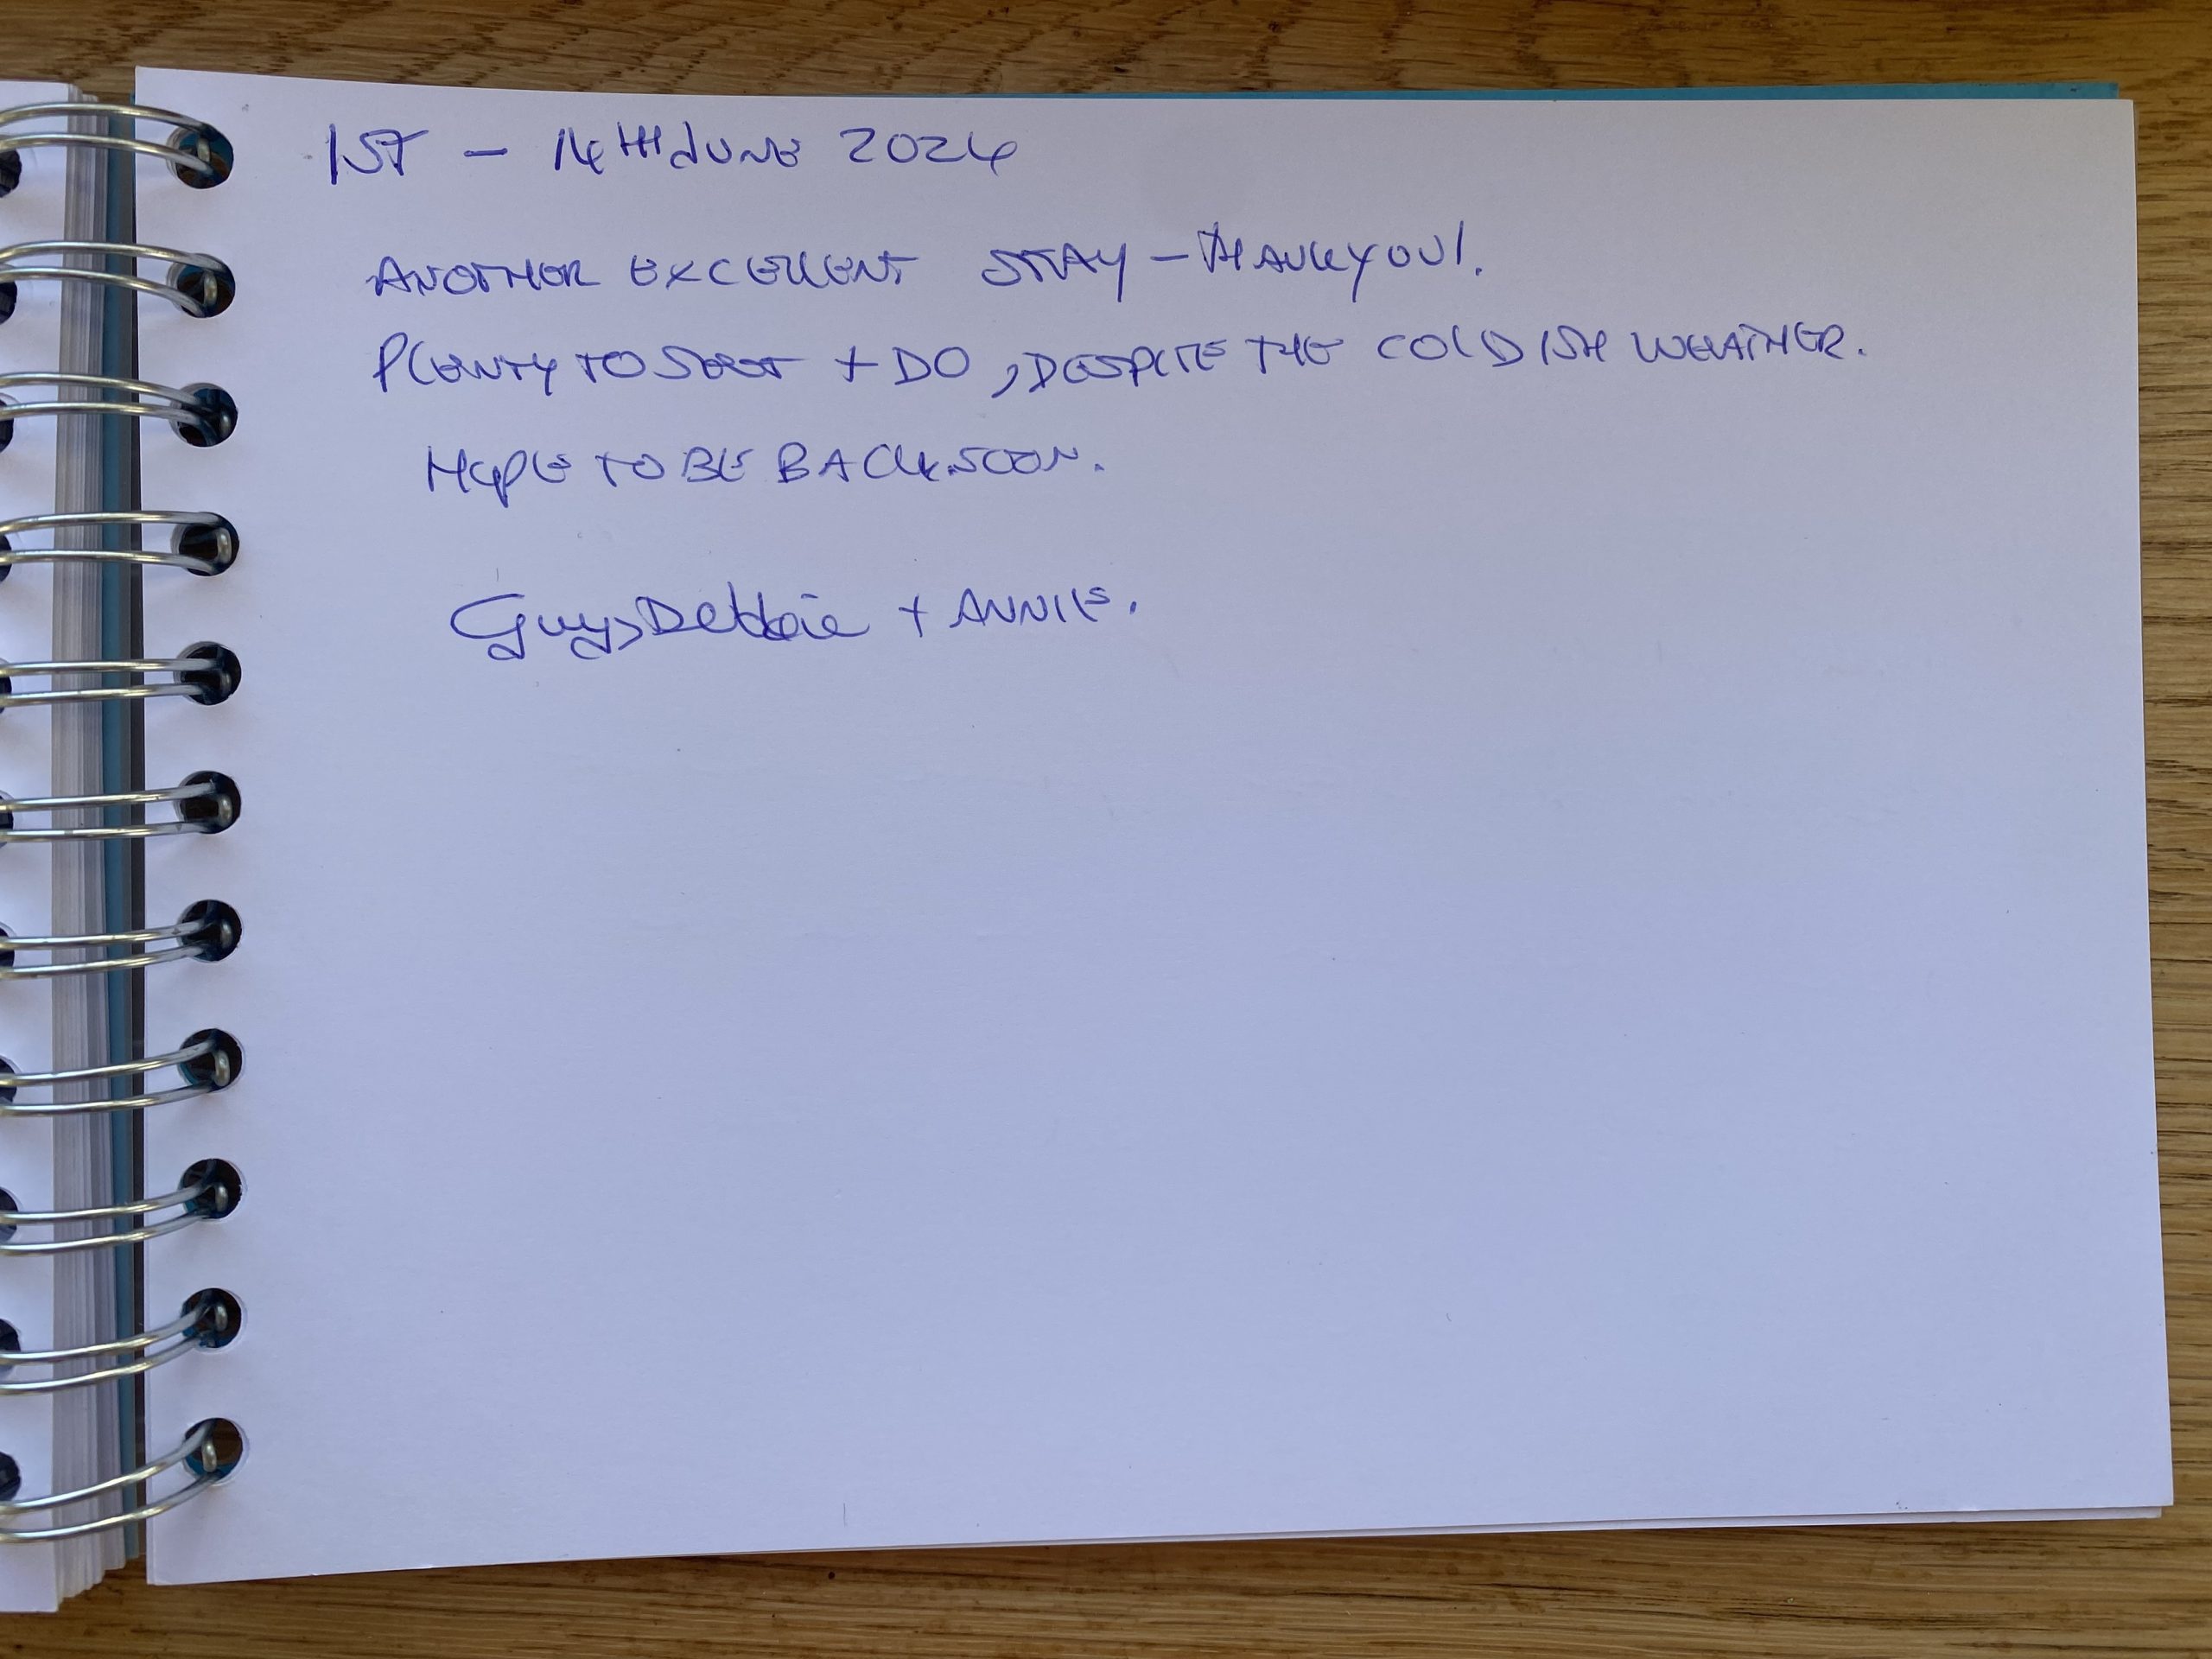 1ST - 14TH JUNE 2024
ANOTHER EXCELLENT STAY - THANKYOU!.
PLENTY TO SEE + DO, DESPITE THE COLDISH WEATHER.
HOPE TO BE BACK SOON.
Guy, Debbie + ANNIE.